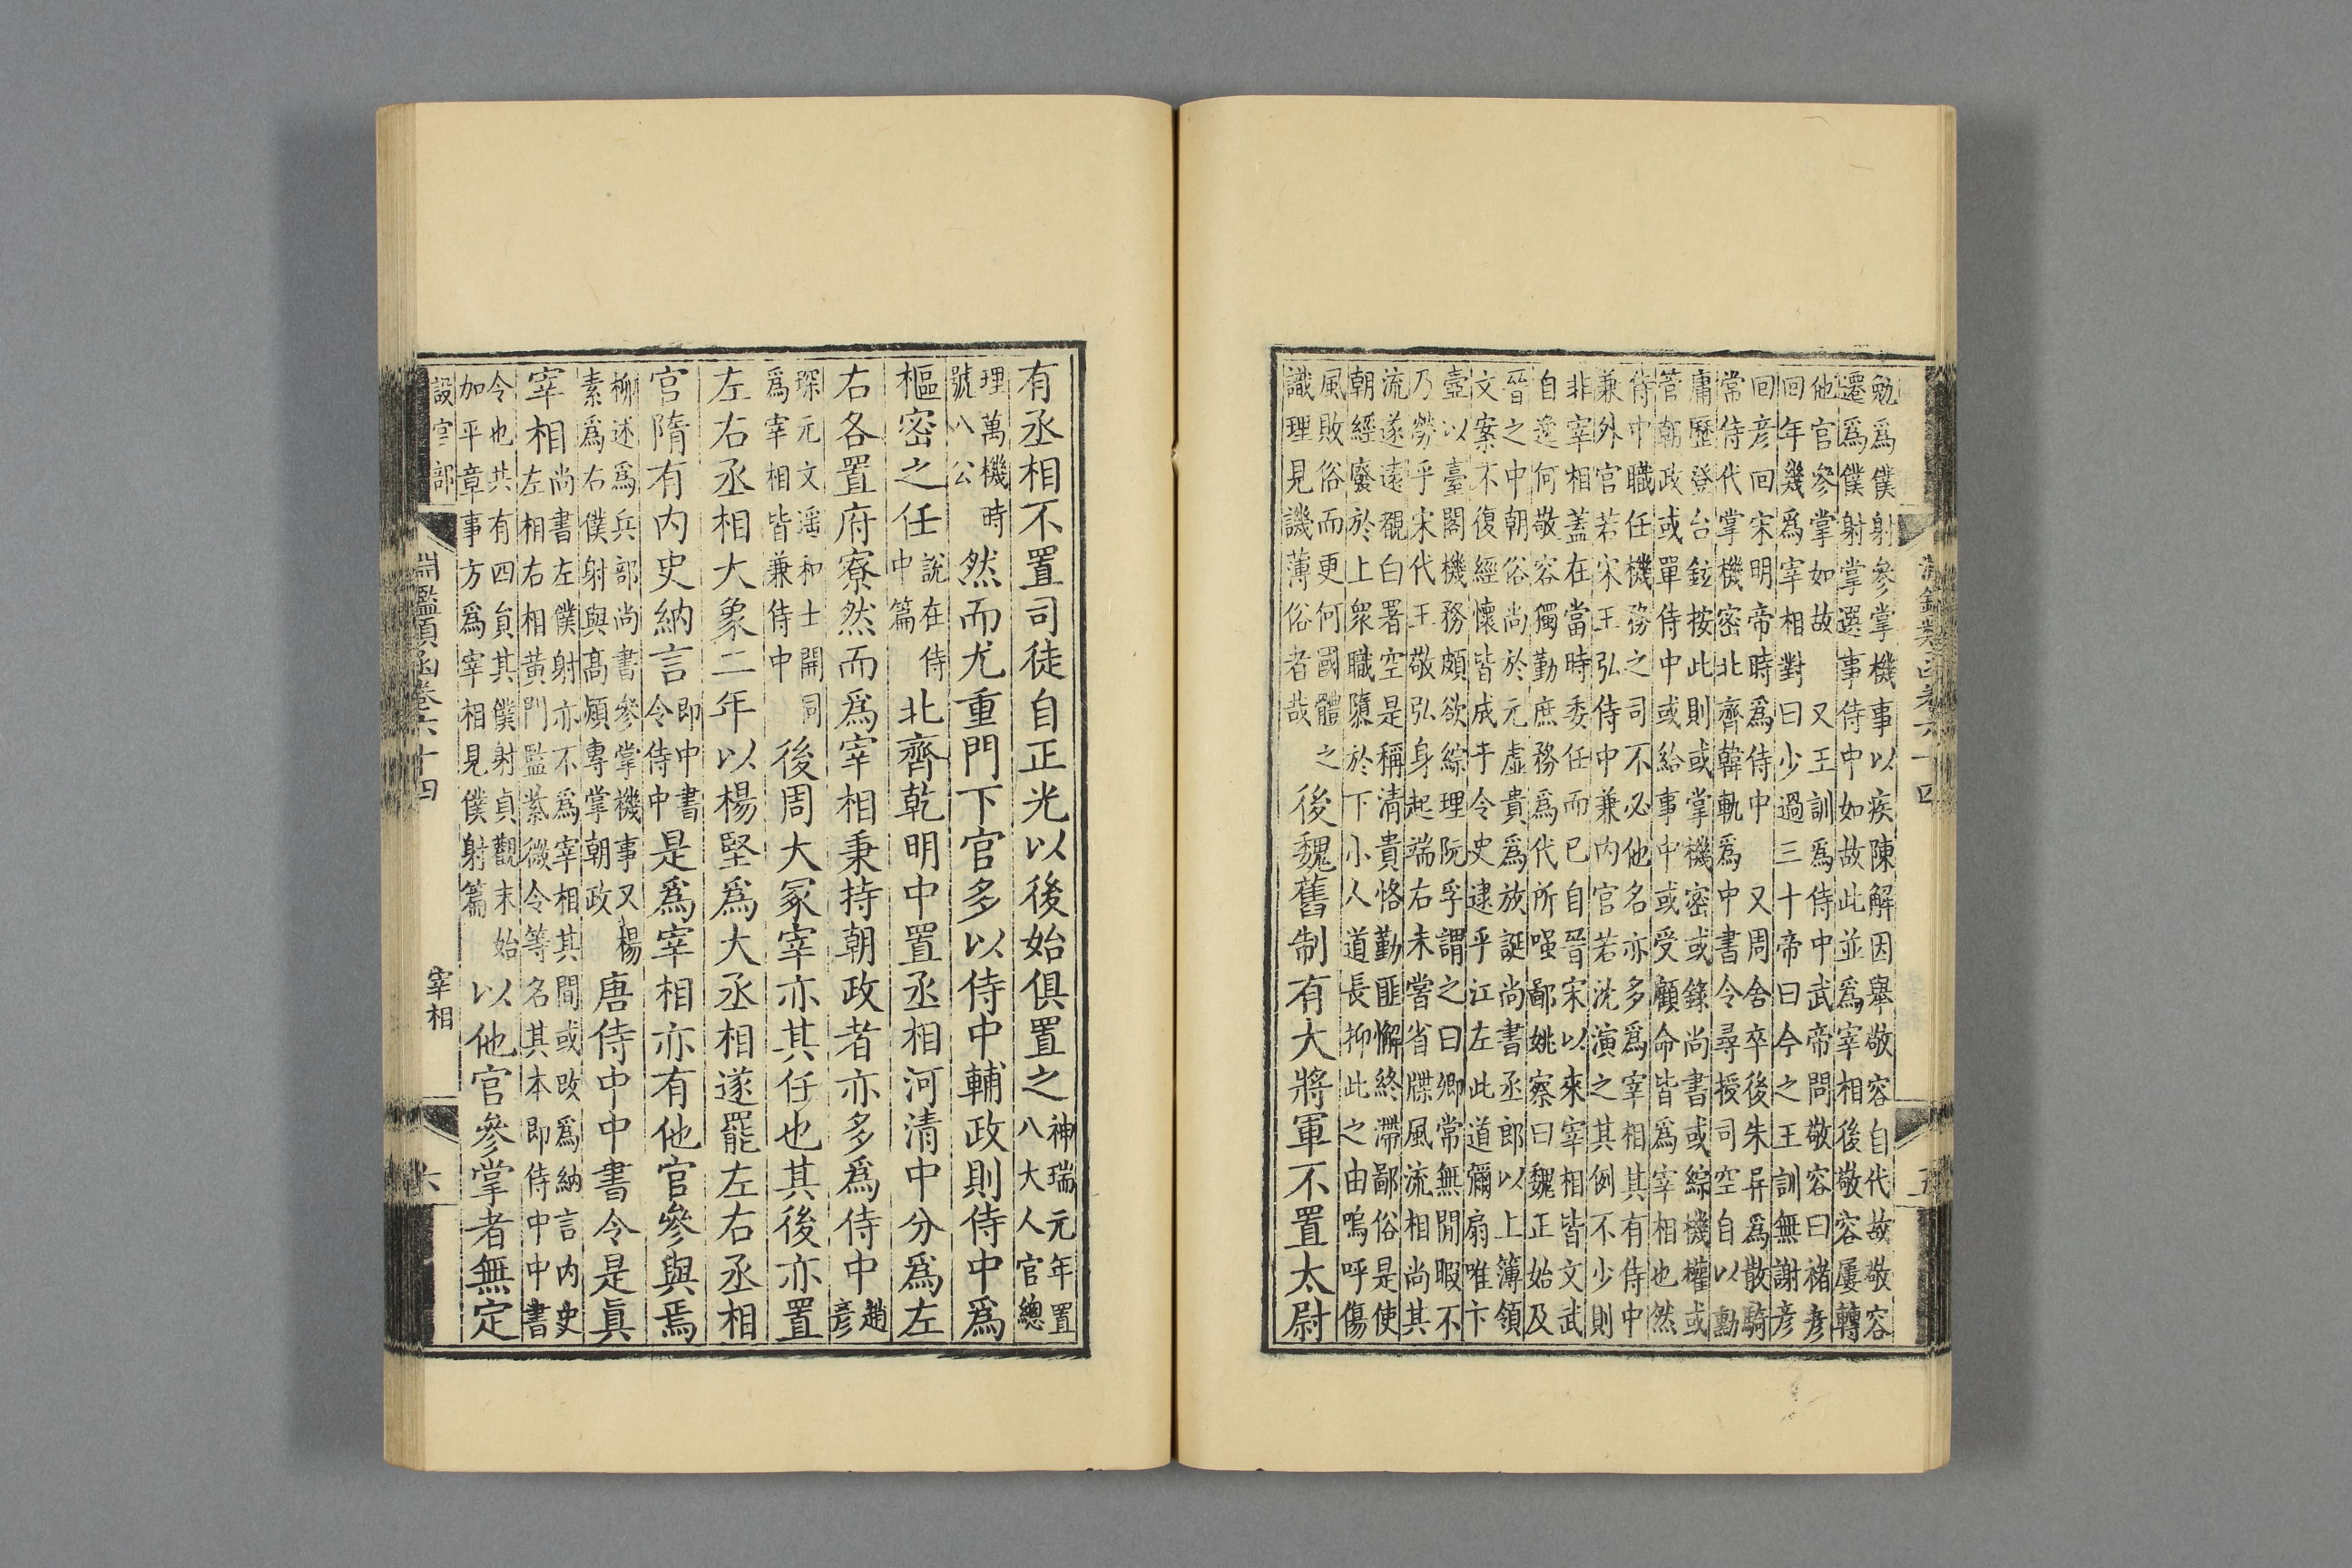 淵鑑類函卷六十四 五
勉爲僕射參掌機事以疾陳解因舉敬容自代故敬容
遷爲僕射掌選事侍中如故此並爲宰相後敬容屢轉
他官參掌如故 又王訓爲侍中武帝問敬容曰褚彥
回年幾爲宰相對曰少過三十帝曰今之王訓無謝彥
回彥回宋明帝時爲侍中 又周舍卒後朱异爲散騎
常侍代掌機密北齊韓軌爲中書令尋授司空自以勳
庸歷登台鉉按此則或掌機密或錄尚書或綜機權或
管朝政或單侍中或給事中或受顧命皆爲宰相也然
侍中職任機務之司不必他名亦多爲宰相其有侍中
兼外官若宋王弘侍中兼內官若沈演之其例不少則
非宰相蓋在當時委任而已自晉宋以來宰相皆文武
自逸何敬容獨勤庶務爲代所嗤鄙姚察曰魏正始及
晉之中朝俗尚於元虛貴爲放誕尚書丞郎以上簿領
文案不復經懷皆成于令史逮乎江左此道彌扇唯卞
壼以臺閣機務頗欲綜理阮孚謂之曰卿常無閒暇不
乃勞乎宋代王敬弘身起端右未嘗省牒風流相尚其
流遂遠覩白署空是稱清貴恪勤匪懈終滯鄙俗是使
朝經廢於上衆職隳於下小人道長抑此之由嗚呼傷
風敗俗而更何國體之
識理見譏薄俗者哉
後魏舊制有大將軍不置太尉
有丞相不置司徒自正光以後始俱置之
神瑞元年置
八大人官總
理萬機時
號八公
然而尤重門下官多以侍中輔政則侍中爲
樞密之任
說在侍
中篇
北齊乾明中置丞相河清中分爲左
右各置府寮然而爲宰相秉持朝政者亦多爲侍中
趙
彥
琛元文遥和士開同
爲宰相皆兼侍中
後周大冢宰亦其任也其後亦置
左右丞相大象二年以楊堅爲大丞相遂罷左右丞相
官隋有內史納言
即中書
令侍中
是爲宰相亦有他官參與焉
柳述爲兵部尚書參掌機事又楊
素爲右僕射與高熲專掌朝政
唐侍中中書令是眞
宰相
尚書左僕射亦不爲宰相其間或改爲納言內史
左相右相黃門監紫微令等名其本即侍中中書
令也共有四員其僕射貞觀末始
加平章事方爲宰相見僕射篇
以他官參掌者無定
設官部 淵鑑類函卷六十四 宰相 六